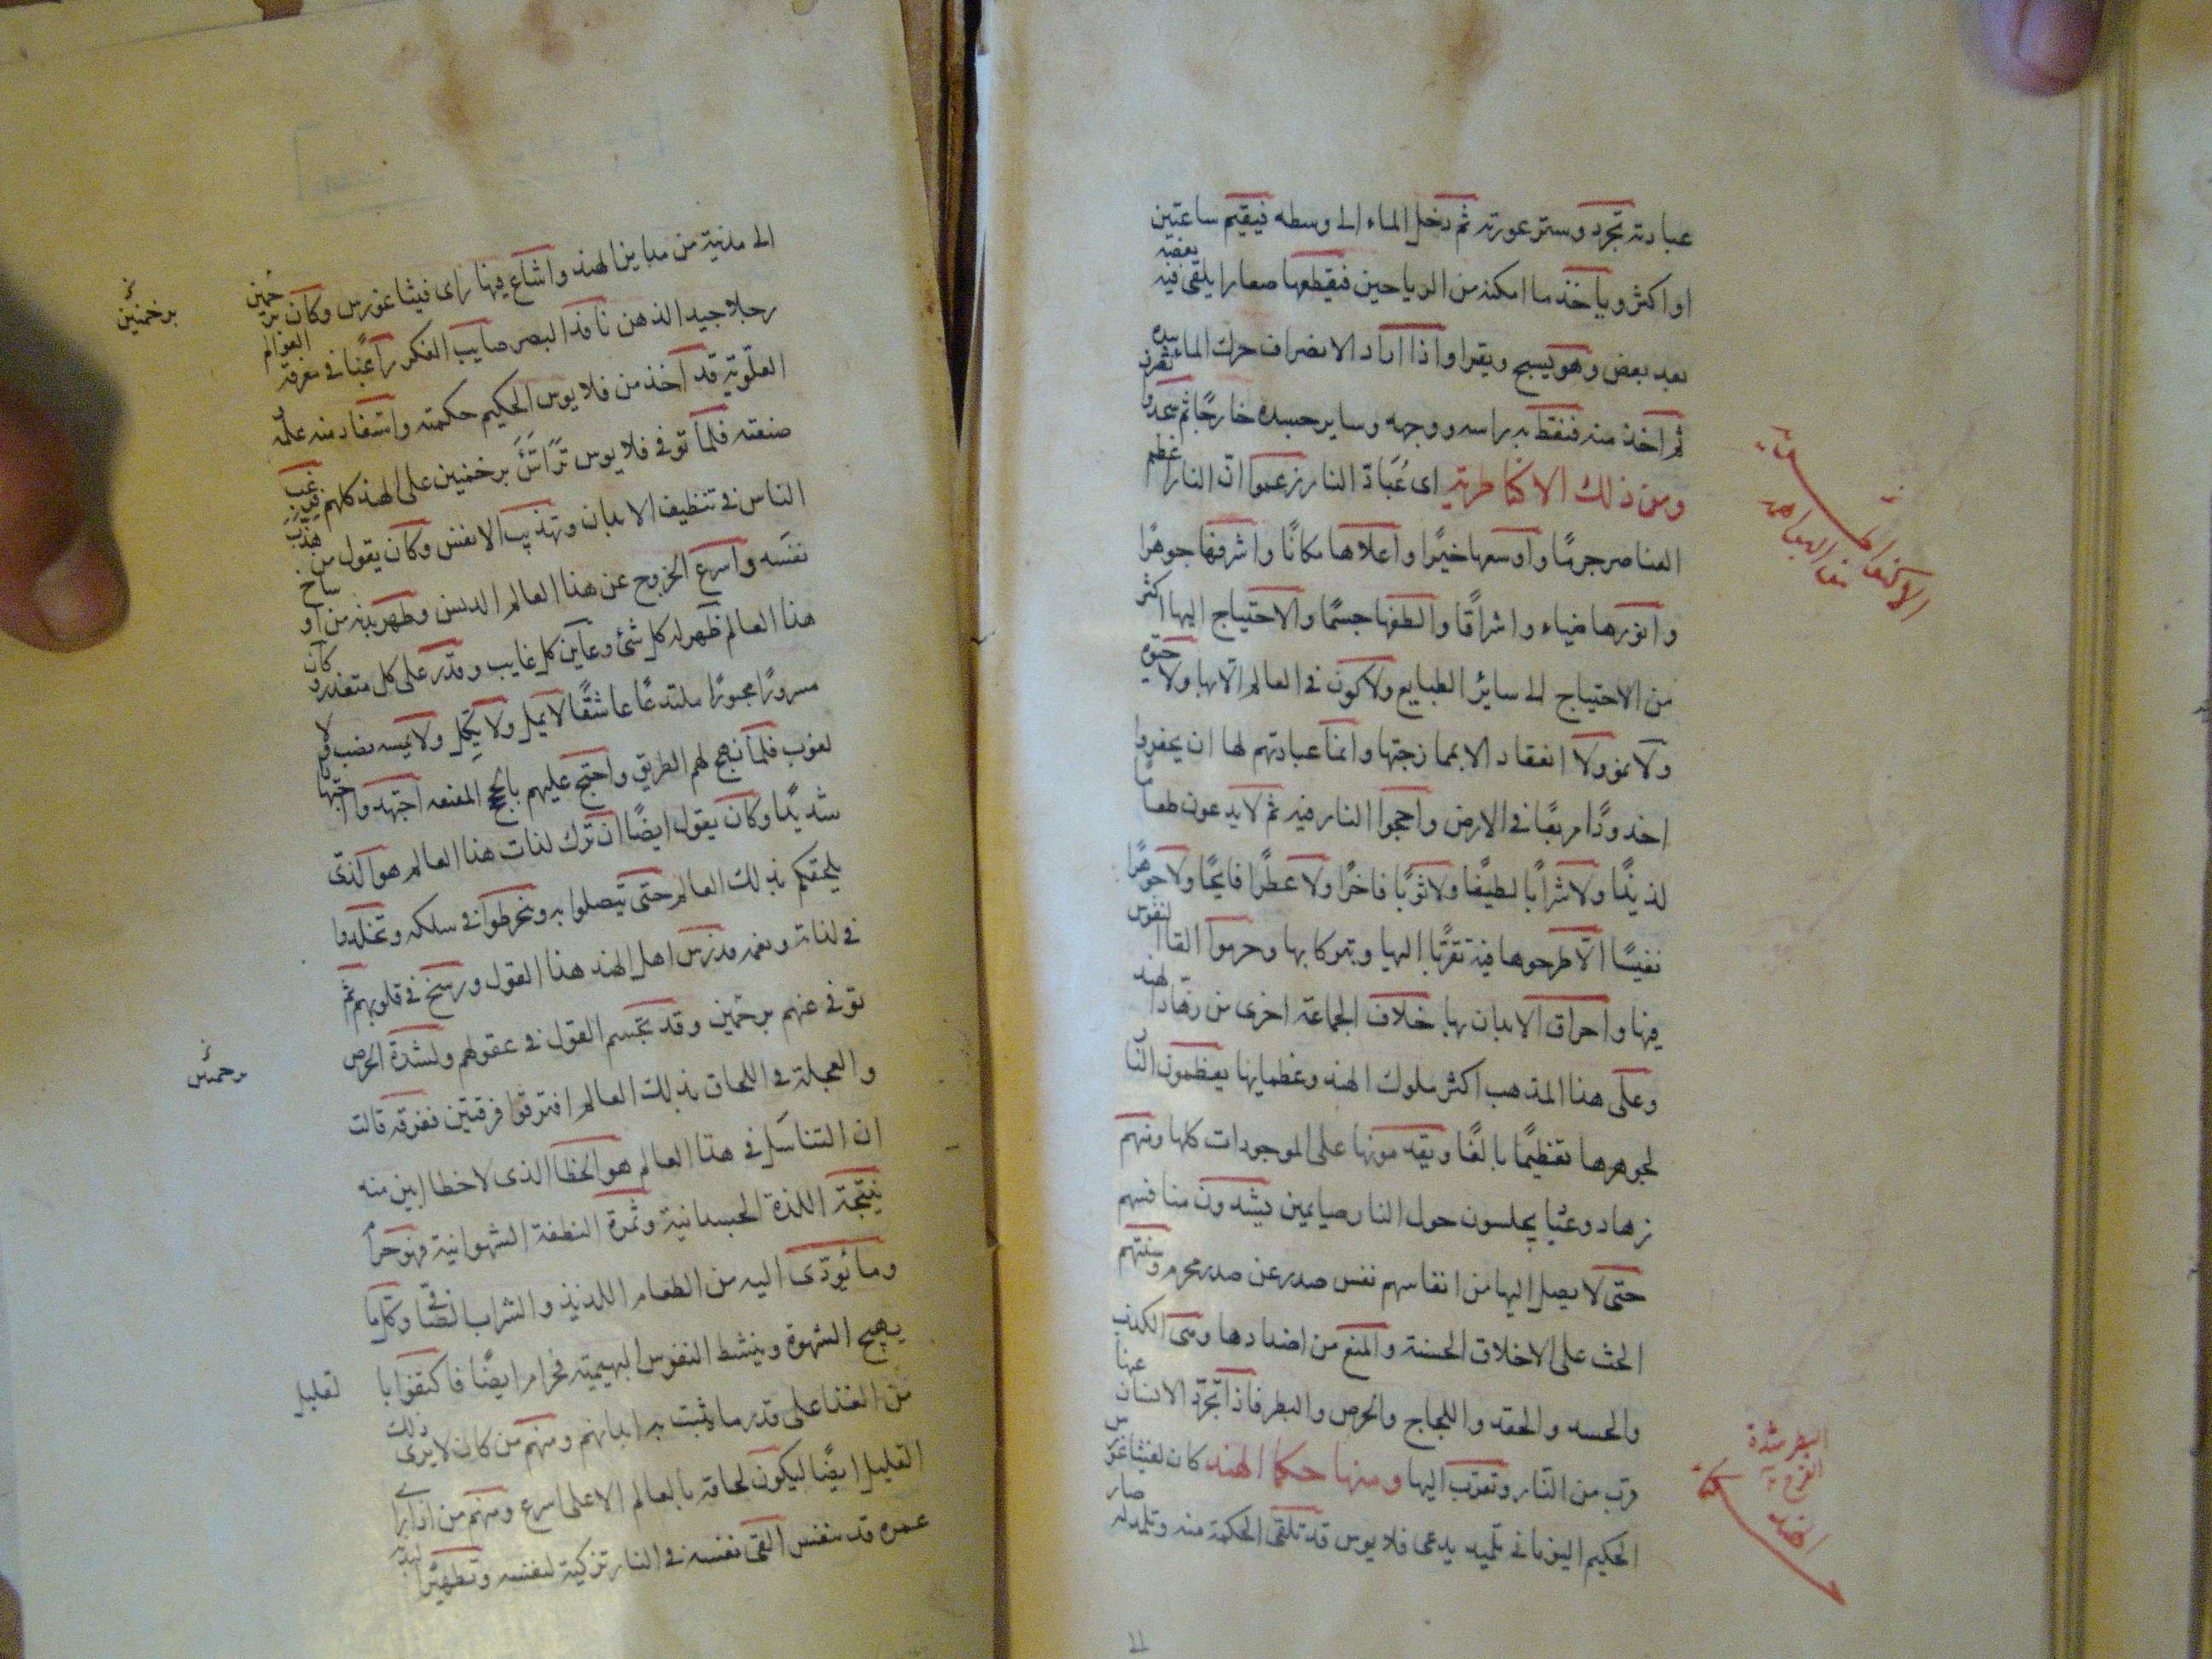 عبادته تجرد وستر عورته ثم دخل الماء الى وسطه فيقيم ساعتين
او اكثر وياخذ ما امكنه من الرياحين فيقطعها صغارا يلقى فيه بعضه
بعد بعض وهو يسبح ويقرا واذا اراد الانصراف حرك الماء بيده
ثم اخذ منه فنقط به راسه ووجهه وساير جسده خارجا ثم سجد و
ومن ذلك الاكناطرية اى عُبّاد النار زعموا ان النار اعظم
العناصر جرمًا واوسعها خيرًا واعلاها مكانًا واشرفها جوهرًا
وانورها ضياء واشراقًا والطفها جسمًا والاحتياج اليها اكثر
من الاحتياج الى ساير الطبايع ولاكون فى العالم الا بها ولا حيوة
ولا نمو ولا انعقاد الا بممازجتها وانما عبادتهم لها ان يحفروا
اخدودًا مربعًا فى الارض واججوا النار فيه ثم لا يدعون طعامًا
لذيذًا ولا شرابًا لطيفًا ولا ثوبًا فاخرًا ولا عطرًا فايحًا ولا جوهرًا
نفيسًا الا طرحوها فيه تقربًا اليها وتبركا بها وحرموا القا النفوس
فيها واحراق الابدان بها خلاف الجماعة اخرى من زهاد الهند
وعلى هذا المذهب اكثر ملوك الهند وعظمايها يعظمون النار
لجوهرها تعظيمًا بالغًا ويقدمونها على الموجودات كلها ومنهم
زهاد وعبا يجلسون حول النار صيايمين يشدون منافسهم
حتى لا يصل اليها من انفاسهم نفس صدر عن صدر محرم وسنتهم
الحث على الاخلاق الحسنة والمنع من اضدادها وهى الكذب
والحسد والحقد واللجاج والحرص والبطر فاذا تجرد الانسان عنها
قرب من النار وتقرب اليها ومنها حكما الهند كان لفيثاغورس
الحكيم اليونانى تلميذ يدعى فلايوس قد تلقى الحكمة منه وتلمذ له صار
البطر شدة
الفرح
الى مدينة من مداين الهند واشاع فيها راى فيثاغورس وكان برخمنين
رجلا جيد الذهن نافذ البصر صايب الفكر راغبًا فى معرفة العوالم
العلوية قد اخذ من فلايوس الحكيم حكمته واستفاد منه علمه و
صنعته فلما توفى فلايوس ترأس برخمنين على الهند كلهم فرغب
الناس فى تنظيف الابدان وتهذيب الانفس وكان يقول من هذب
نفسه واسرع الخروج عن هذا العالم الدنس وطهر بدنه من اوساخ
هذا العالم ظهر له كل شئ وعاين كل غايب وقدر على كل متعذر وكان
مسرورًا محبورًا ملتذعًا عاشقًا لا يمل ولا يكل ولا يمسه نصب ولا
لغوب فلما نهج لهم الطريق واحتج عليهم بالحجج المقنعه اجتهدوا اجتهادا
شديدًا وكان يقول ايضًا ان ترك لذات هذا العالم هو الذى
يلحقكم بذلك العالم حتى تتصلوا به وتنخرطوا فى سلكه وتخلدوا
فى لذاته ونعمه فدرس اهل الهند هذا القول ورسخ فى قلوبهم ثم
توفى عنهم برخمنين وقد تجسم القول فى عقولهم ولشدة الحرص
والعجلة فى اللحاق بذلك العالم افترقوا فرقتين ففرقة قالت
ان التناسل فى هذا العالم هو الخطا الذى لا خطا ابين منه
نتيجة اللذة الجسدانية وثمرة النطفة الشهوانية فهو حرام
وما يؤدى اليه من الطعام اللذيذ والشراب الصافى وكل ما
يهيج الشهوة وينشط النفوس البهيمية فحرام ايضًا فاكتفوا با
لقليل
من الغذا على قدر ما يثبت به ابدانهم ومنهم من كان لا يرى ذلك
القليل ايضًا ليكون لحاقه بالعالم الاعلى اسرع ومنهم من اذا راى
عمره قد تنفس القى نفسه فى النار تزكية لنفسه وتطهيرًا لبدنه
برخمنين
برخمنين
11